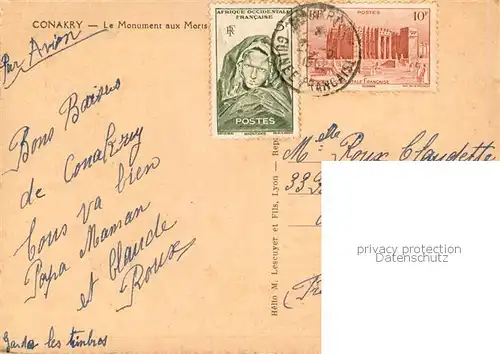 CONAKRY — Le Monument aux Morts
Par Avion
AFRIQUE OCCIDENTALE
FRANÇAISE
RF
POSTES
CONAKRY
GUINÉE FRANÇAISE
POSTES 10F
Bons Baisers
de Conakry
Tous va bien
Papa Maman
et Claude
Roux
Gardez les timbres
Hélio M. Lescuyer et Fils, Lyon —
Melle Roux Claudette
33
privacy protection
Datenschutz